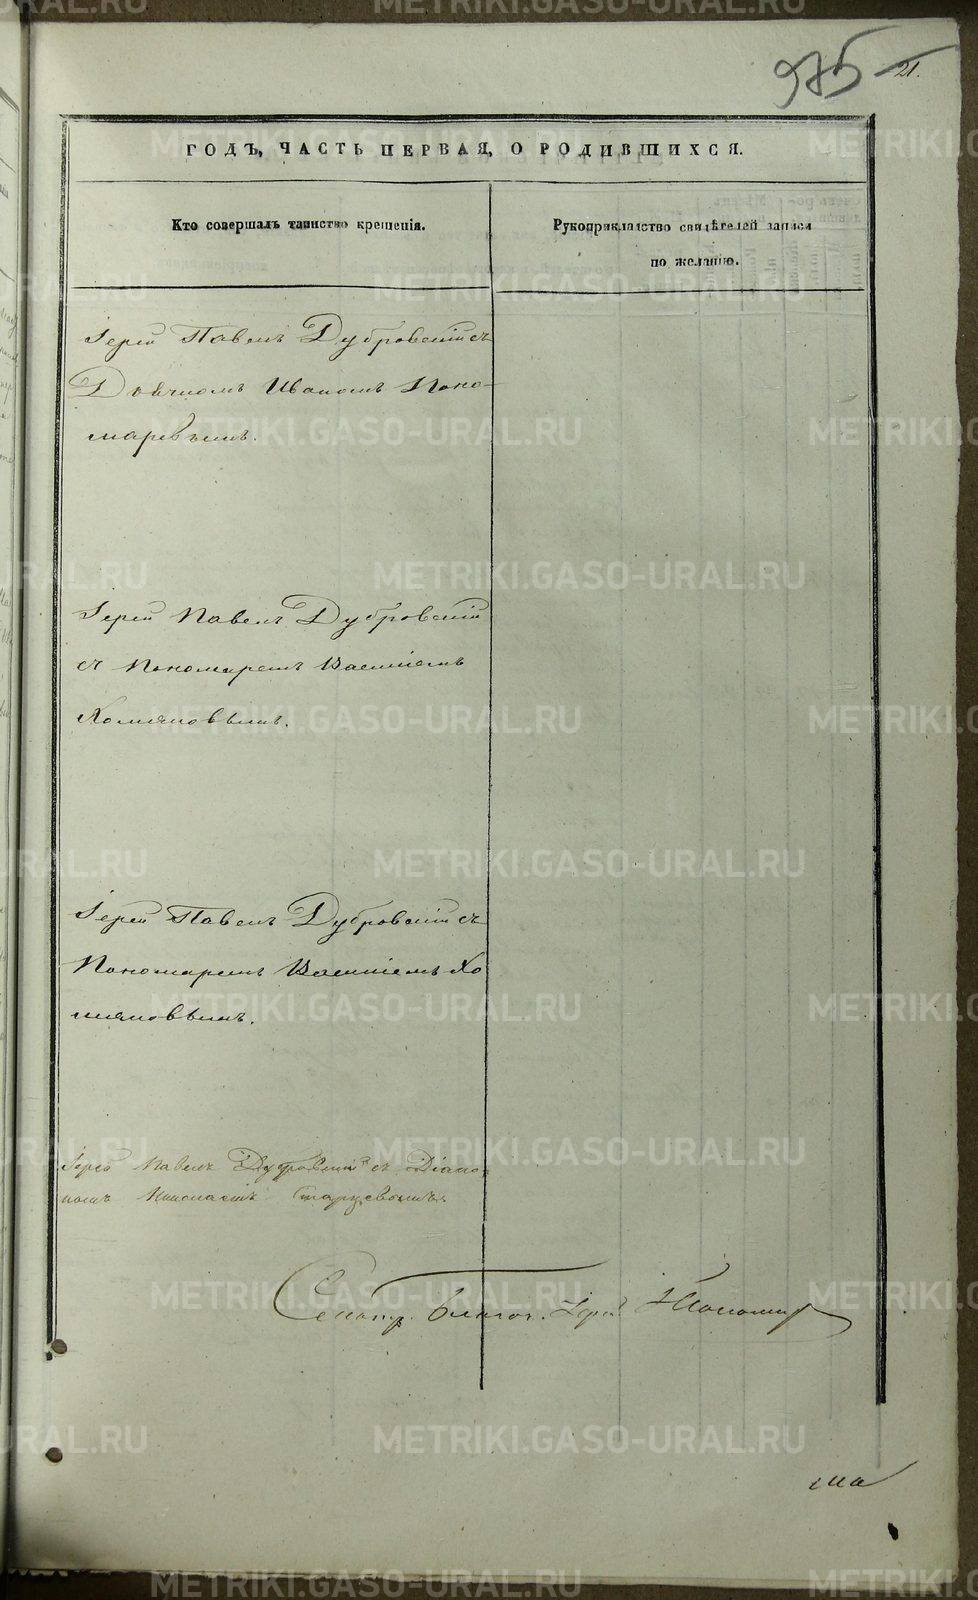 975
21.
ГОДЪ, ЧАСТЬ ПЕРВАЯ, О РОДИВШИХСЯ.
Кто совершалъ таинство крещенія.
Рукоприкладство свидѣтелей записи
по желанію.
Іерей Павелъ Дубровскій съ
Дьячкомъ Иваномъ Поно-
маревымъ.
Іерей Павелъ Дубровскій
съ Пономаремъ Василіемъ
Хомяковымъ.
Іерей Павелъ Дубровскій съ
Пономаремъ Василіемъ Хо
мяковымъ.
Іерей Павелъ Дубровскій съ Діако-
номъ Николаемъ Старцевымъ.
Благоч. Іерей Пономар
METRIKI.GASO-URAL.RU